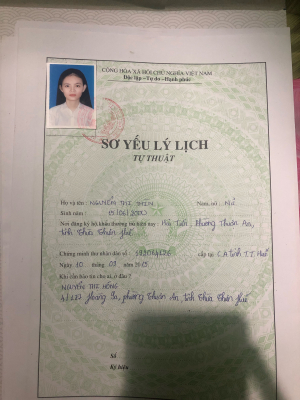 CỘNG HÒA XÃ HỘI CHỦ NGHĨA VIỆT NAM
Độc lập - Tự do - Hạnh phúc
SƠ YẾU LÝ LỊCH
TỰ THUẬT
Họ và tên : NGUYỄN THỊ Nam, nữ : Nữ
Sinh năm : 15/06/
Nơi đăng ký hộ khẩu thường trú hiện nay : Hải Tiến, Phường Thuận An,
tỉnh Thừa Thiên Huế
Chứng minh thư nhân dân số : cấp tại CA tỉnh TT Huế
Ngày 10 tháng 09 năm
Khi cần báo tin cho ai, ở đâu ?
NGUYỄN THỊ HỒNG
Hoàng Sa, phường Thuận An, tỉnh Thừa Thiên Huế
Số
Ký hiệu